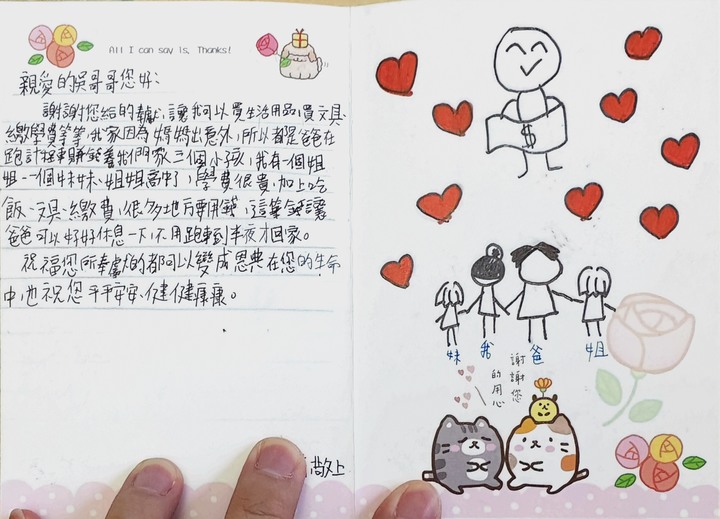 All I can say is, Thanks!
親愛的吳哥哥您好:
謝謝您給的奉獻,讓我可以買生活用品,買文具、
繳學費等等,我家因為媽媽出意外,所以都是爸爸在
跑計程車賺錢養我們家三個小孩,我有一個姐
姐、一個妹妹,姐姐高中了,學費很貴,加上吃
飯、文具、繳費,很多地方要用錢,這筆錢讓
爸爸可以好好休息一下,不用跑車到半夜才回家。
祝福您所奉獻的都可以變成恩典在您的生命
中,也祝您平平安安、健健康康。
敬上
$
妹 我 爸 姐
謝謝您
的用心